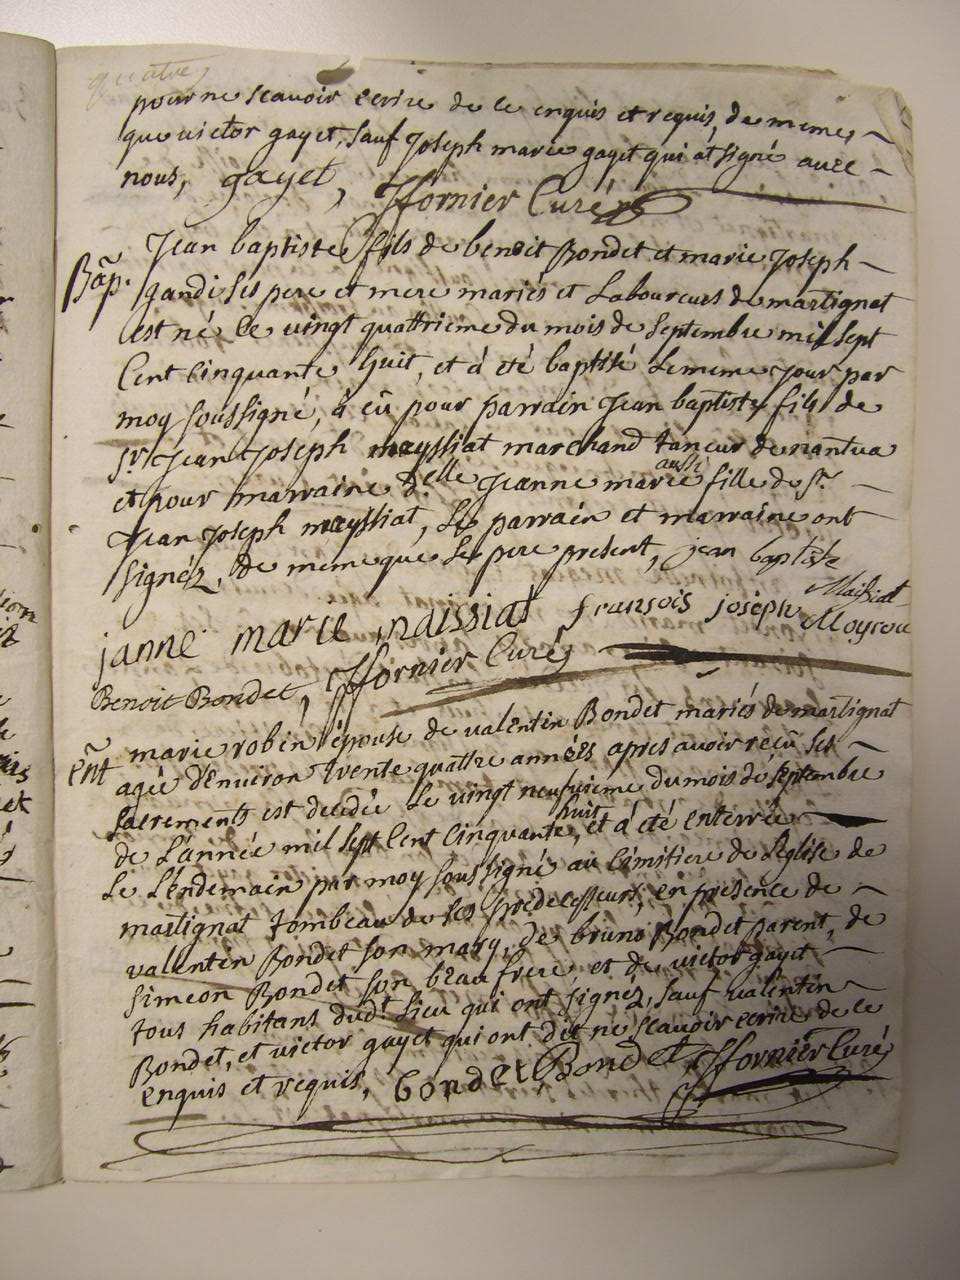 quatre
pour ne scavoir ecrire de ce enquis et requis, de meme
que victor gayet, sauf Joseph marie gayet qui at signé avec
nous, gayet, ffornier Curé
Bap.
Jean baptiste fils de benoit Bondet et marie Joseph
gandi ses pere et mere mariés et Laboureurs de martignat
est né le vingt quattrieme du mois de septembre mil sept
Cent Cinquante huit, et à eté baptisé le meme jour par
moy soussigné, à eû pour parrain Jean baptiste fils de
sr Jean Joseph mayssiat marchand tanneur de nantua
et pour marraine d.elle Jeanne marie aussi fille de sr.
Jean Joseph mayssiat, Le parrain et marraine ont
signéz, de meme que le pere present, jean baptiste
Maissiat
janne marie maissiat fransois joseph Moyrou
Benoit Bondet, ffornier Curé
ent
marie robin épouse de valentin Bondet mariés de martignat
agée d'environ trente quattre années, apres avoir reçû ses
sacrements est decedée le vingt neufvieme du mois de septembre
de L'année mil sept Cent Cinquante huit, et à été enterrée
Le Lendemain par moy soussigné au Cimitiere de L'eglise de
martignat tombeau de ses predecesseurs, en presence de
valentin Bondet son mary, de bruno Bondet parent, de
simeon Bondet son beau frere et de victor gayet
tous habitans dud. Lieu qui ont signéz, sauf valentin
Bondet, et victor gayet qui ont dit ne scavoir ecrire de ce
enquis et requis, bondet Bondet ffornier Curé